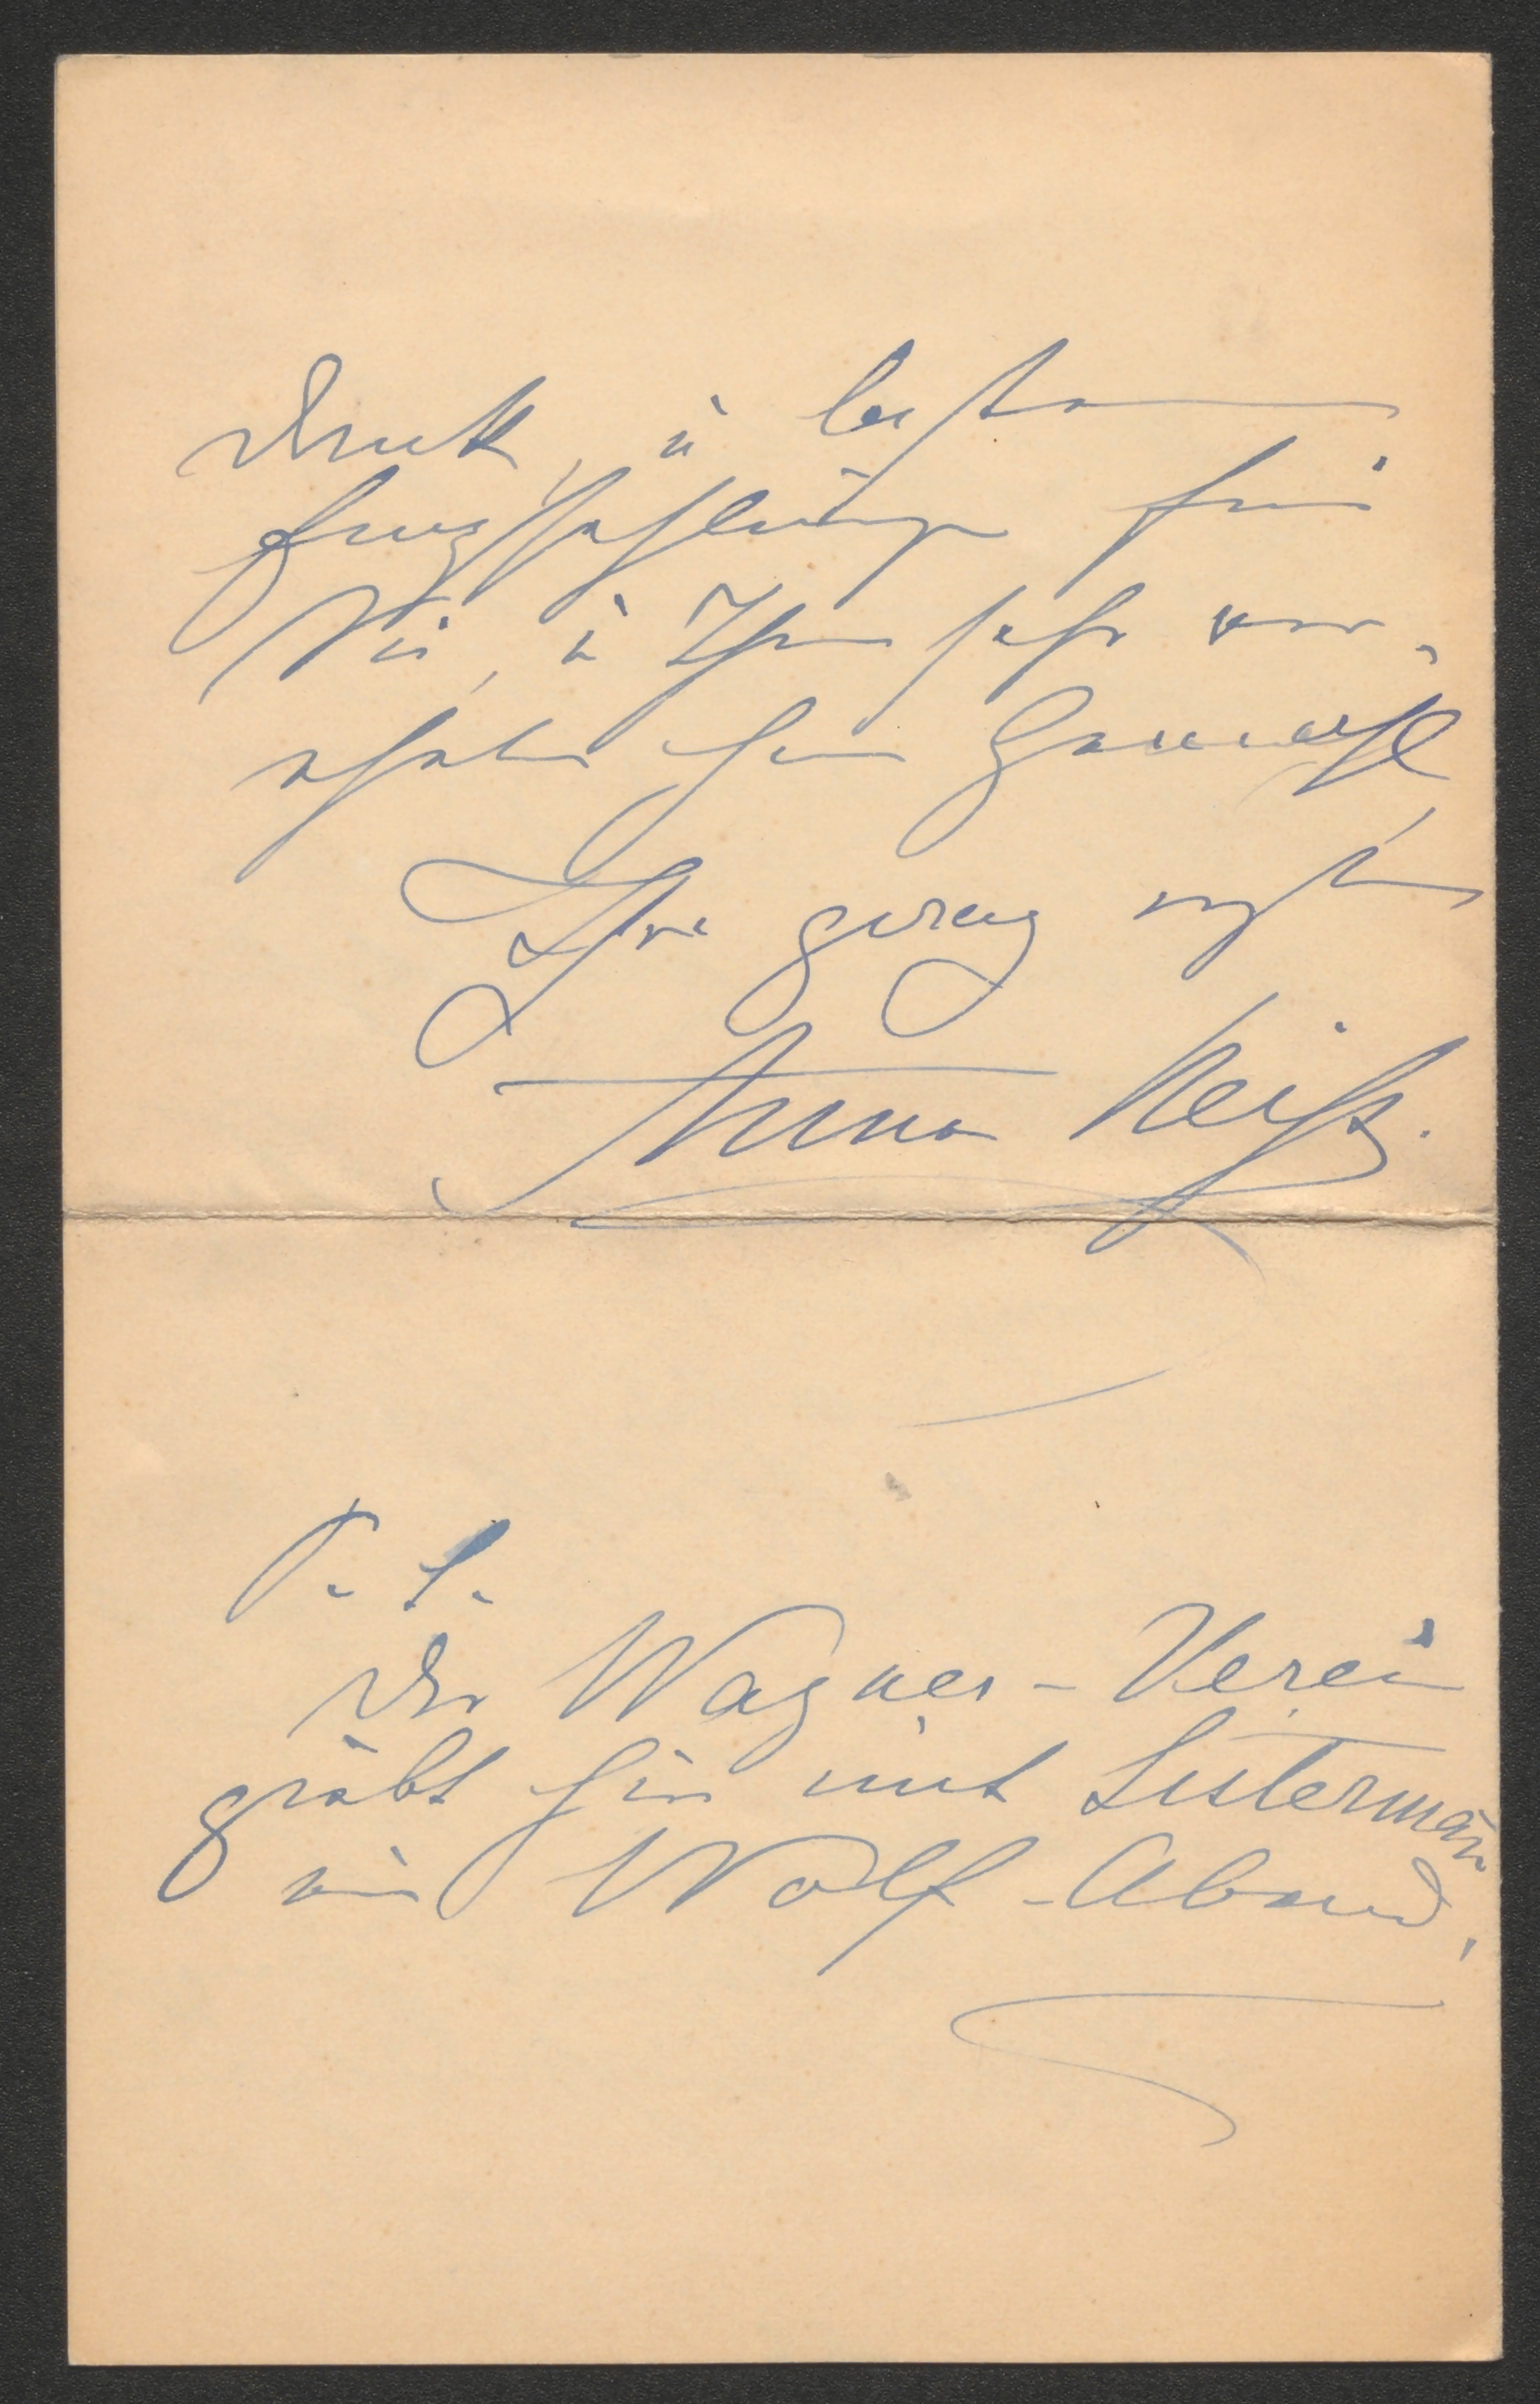 Dank, u besten
Empfehlungen für
Sie, u Ihren sehr ver-
ehrten Herrn Gemahl
Ihre ganz ergebene
Anna Reiß.
P. S.
Der Wagner-Verein
giebt hier mit Sistermans
ein Wolf-Abend,